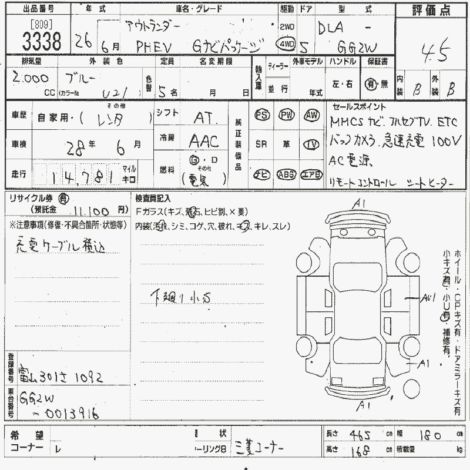 出品番号 年式 車名・グレード 駆動 ドア 型式 評価点
[809] アウトランダー 2WD DLA-
3338 26年 6月 PHEV Gナビパッケージ 4WD 5 GG2W 4.5
排気量 外装色 定員 名変期限 輸入車 ディーラー 外車モデル ハンドル 保証書 内装 外装
2.000 ブルー
CC (カラーNo. U21) 色替 5名 月 日 並行 年 左・右 有・無 B B
車歴 自家用・レンタ その他 シフト AT 純正装備品 PS PW AW セールスポイント
車検 28年 6月 冷房 AAC SR 革 TV MMCSナビ フルセグTV. ETC
バックカメラ. 急速充電 100V
走行 14,781 マイル キロ 燃料 G・D (電気) ナビ ABS エアB AC電源
リモートコントロール シートヒーター
リサイクル券 有 (預託金 11.100 円) 検査員記入
※注意事項(修復・不具合箇所・状態等) Fガラス(キズ, 飛石, ヒビ割, ×要)
内装(汚, シミ, コゲ, 穴, 破れ, キズ, キレ, スレ)
充電ケーブル積込
下廻り小サ
A1
A1
A1
ホイール・CPキズ有・ドアミラーキズ有
小キズ有・小U有・補修有.
登録番号 富山301さ1092
車台番号 GG2W
-0013916
希望コーナー レ 状 ーリングB 三菱コーナー 長さ 465 cm 幅 180 cm
高さ 168 cm 積載量 kg